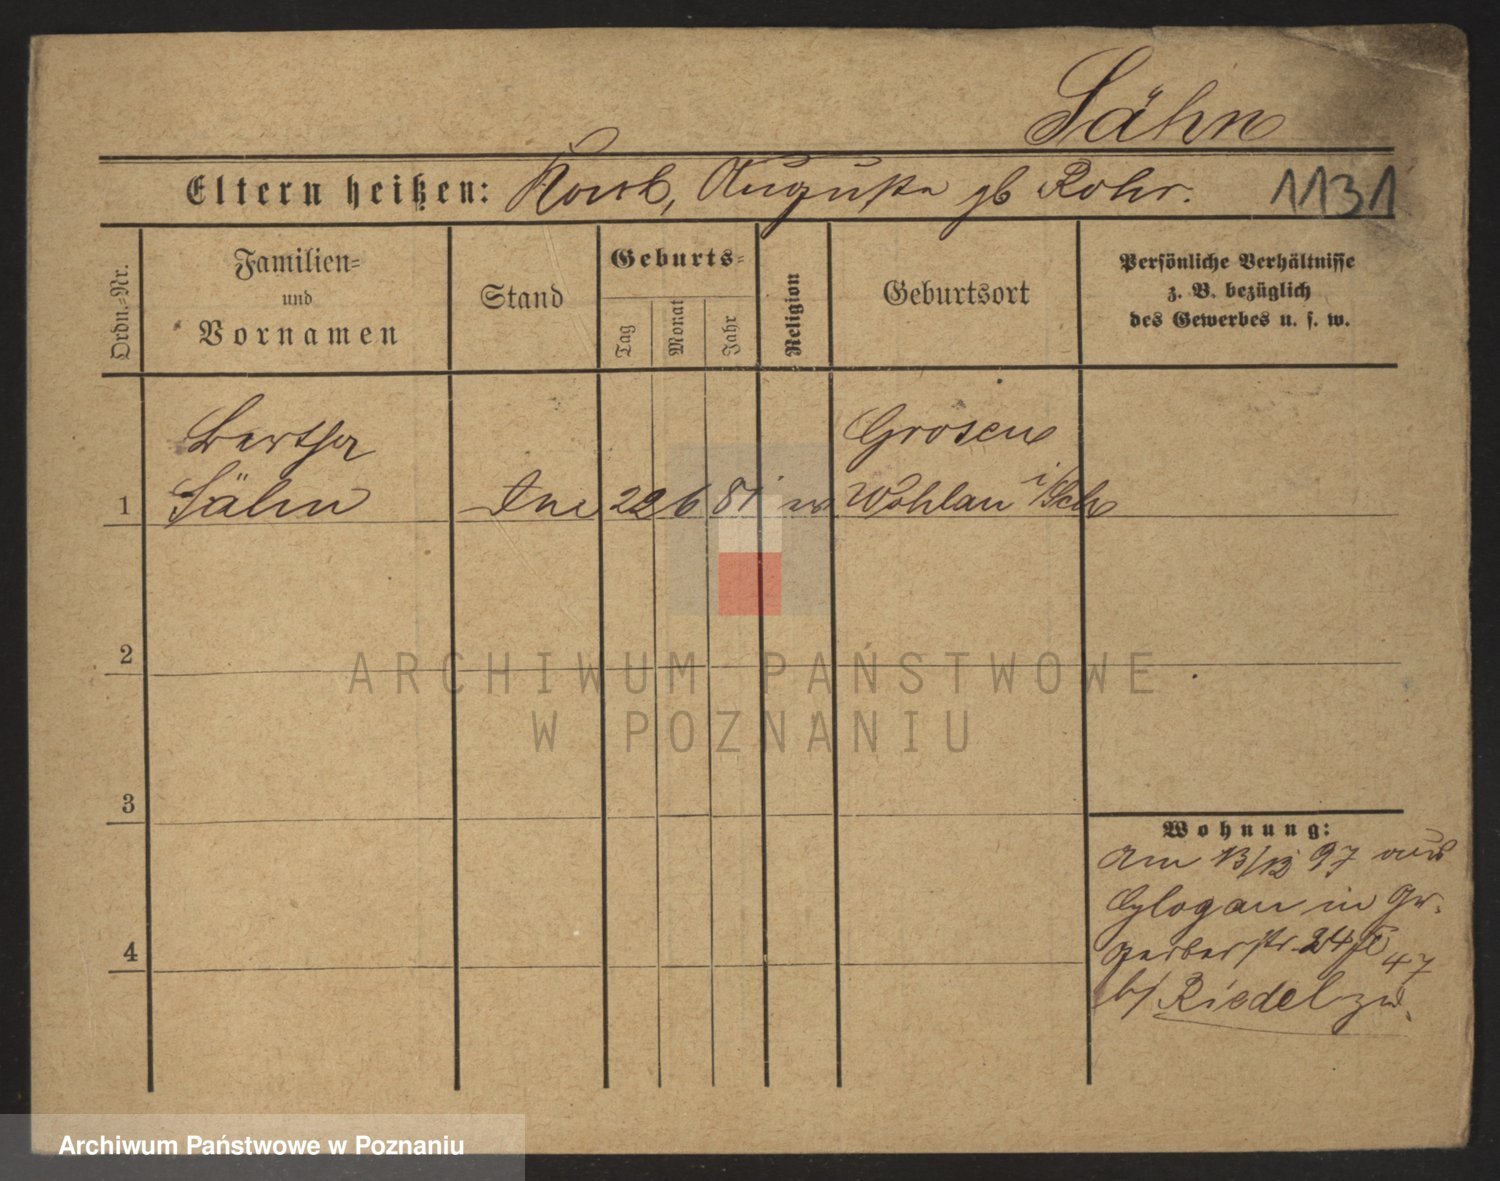 Sähn
Eltern heißen: Karl, Auguste gb Rohr. 1131
Ordn.-Nr.
Familien-
und
Vornamen
Stand
Geburts-
Tag
Monat
Jahr
Religion
Geburtsort
Persönliche Verhältnisse
z. B. bezüglich
des Gewerbes u. s. w.
Bertha
Sähn
1
22 6 81
Grosen
Wohlau i/Sch
2
3
4
Wohnung:
Am 13/12 97 aus
Glogau in Gr.
Gerberstr. 24
47
b/ Riedel zu.
ARCHIWUM PAŃSTWOWE
W POZNANIU
Archiwum Państwowe w Poznaniu